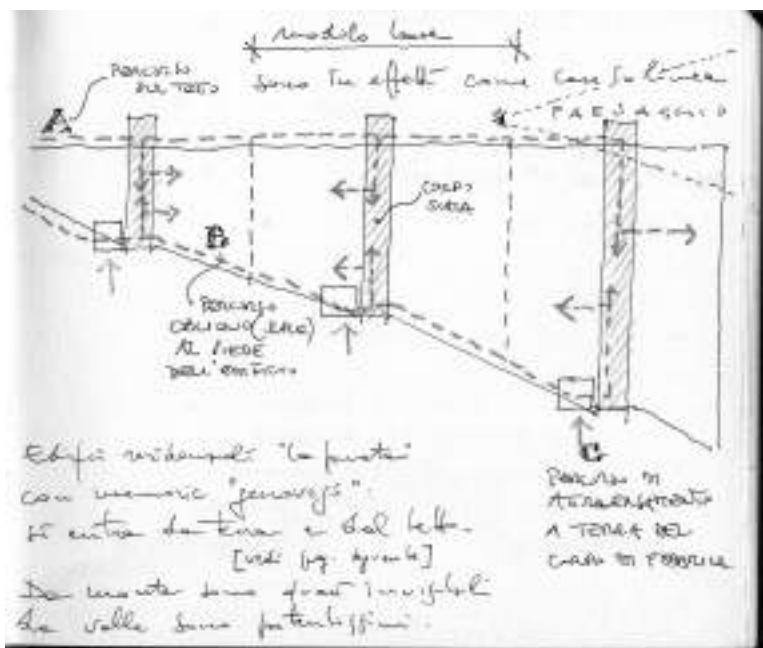 modulo base
PERCORSO
SUL TETTO
sono in effetti come case in linea
A
PAESAGGIO
CORPO
SCALA
B
PERCORSO
OBLIQUO (SCALE)
AL PIEDE
DELL'EDIFICIO
C
PERCORSO DI
ATTRAVERSAMENTO
A TERRA DEL
CORPO DI FABBRICA
Edifici residenziali
con memorie "genovesi".
si entra da terra e dal tetto.
[vedi pag. seguente]
Da monte sono quasi invisibili
da valle sono potentissimi.